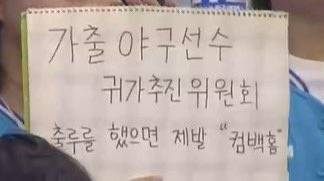 가출 야구선수
귀가추진위원회
출루를 했으면 제발 "컴백홈"